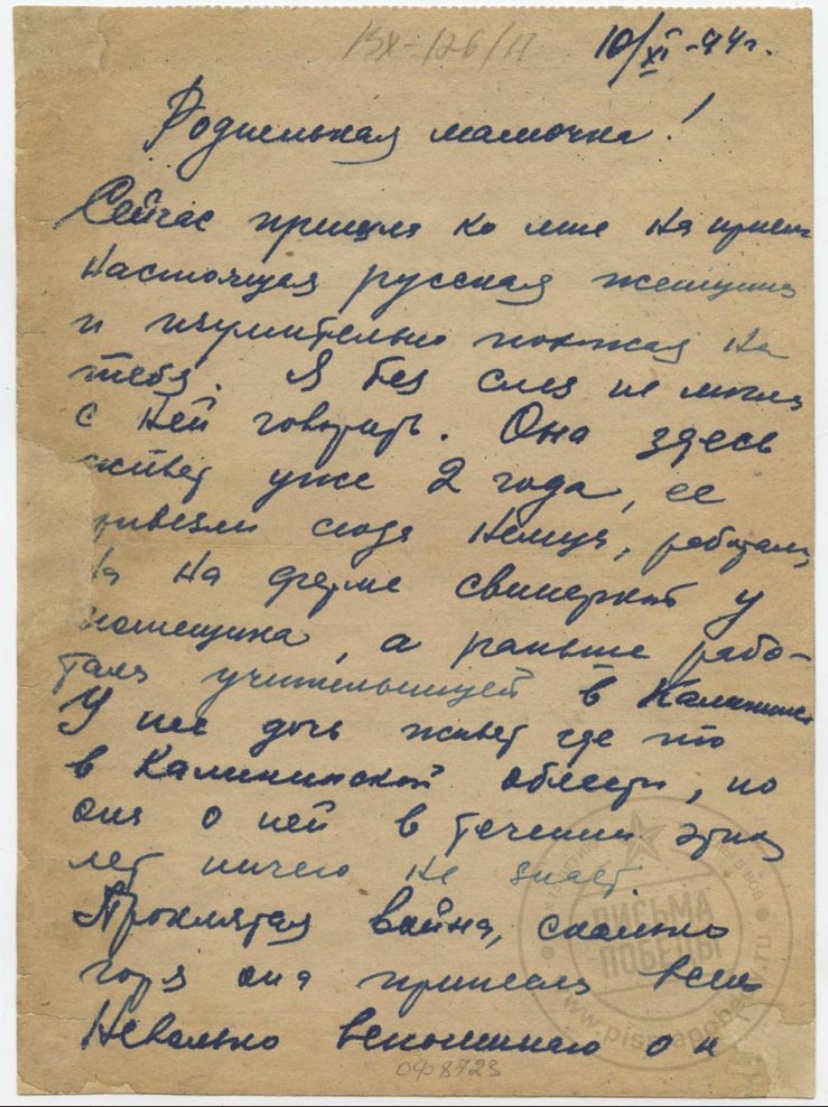 ВХ-126/11
10/XI-44г.
Родненькая мамочка!
Сейчас пришла ко мне на прием
настоящая русская женщина
и изумительно похожая на
тебя. Я без слез не могла
с ней говорить. Она здесь
живет уже 2 года, ее
привезли сюда немцы, работала
на ферме свинаркой у
помещика, а раньше рабо-
тала учительницей в Калинине
У нее дочь живет где то
в Калининской области, но
она о ней в течении этих
лет ничего не знает
Проклятая война, сколько
горя она принесла всем
Невольно вспоминаю о н
ПИСЬМА
ПОБЕДЫ
www.pismapobedy.ru
ОФ8723